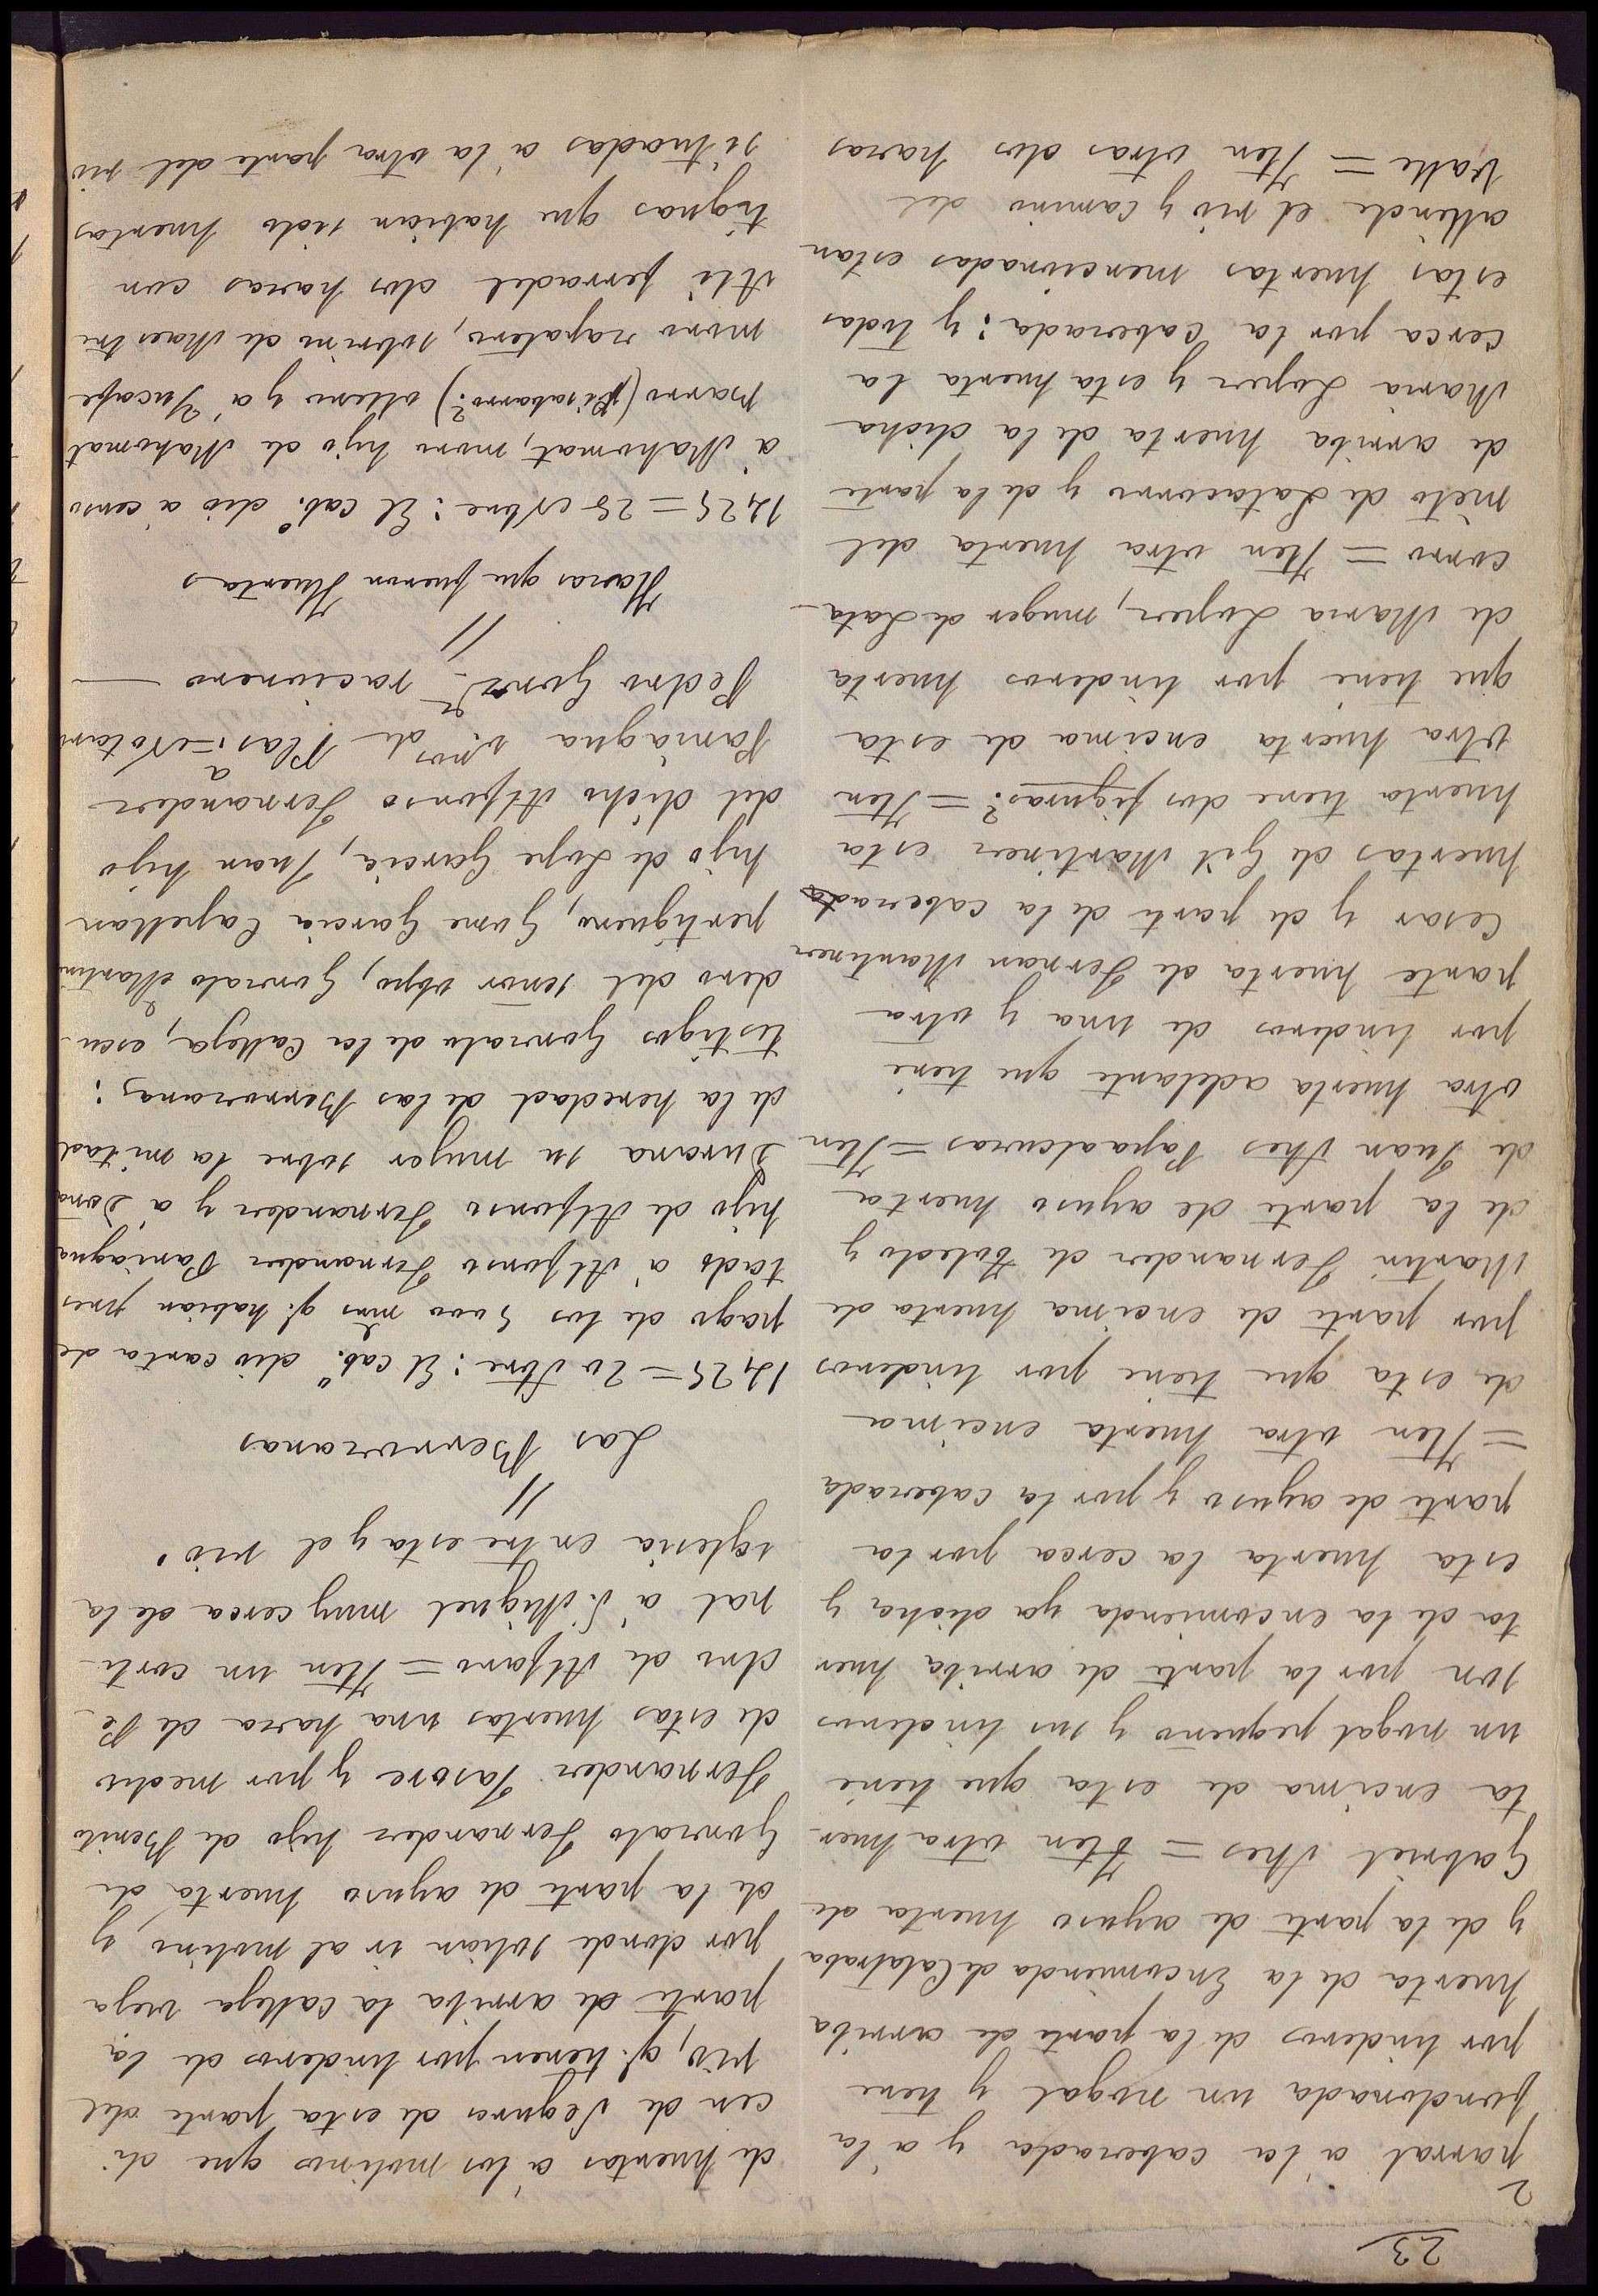 23
2
parral á la cabezada y á la
fondonada un nogal y tiene
por linderos de la parte de arriba
huerta de la Encomienda de Calatraba
y de la parte de ayuso huerta de
Gabriel Vhes = Iten otra huer-
ta encima de esta que tiene
un nogal pequeño y sus linderos
son por la parte de arriba huer
ta de la encomienda ya dicha y
esta huerta la cerca por la
parte de ayuso y por la cabezada
= Iten otra huerta encima
de esta que tiene por linderos
por parte de encima huerta de
Martin Fernandez de Toledo y
de la parte de ayuso huerta
de Juan Vhes Papaalcuzas = Iten
otra huerta adelante que tiene
por linderos de una y otra
parte huerta de Fernan Martinez
Cesar y de parte de la cabezada
huertas de Gil Martinez esta
huerta tiene dos figuras? = Iten
otra huerta encima de esta
que tiene por linderos huerta
de Maria Lopez, muger de Lata-
corro = Iten otra huerta del
nieto de Latacorro y de la parte
de arriba huerta de la dicha
Maria Lopez y esta huerta la
cerca por la cabezada: y todas
estas huertas mencionadas estan
allende el rio y camino del
Valle = Iten otras dos hazas
de huertas á los molinos que di-
cen de Seguros de esta parte del
rio, q. tienen por linderos de la
parte de arriba la calleja vieja
por donde solian ir al molino y
de la parte de ayuso huerta de
Gonzalo Fernandez hijo de Benito
Fernandez Tasore y por medio
de estas huertas una haza de Pe-
dro de Alfaro = Iten un corti-
nal á S. Miguel muy cerca de la
iglesia entre esta y el rio.
//
Las Berrozanas
1425 = 20 Abre: El cab.º dió carta de
pago de los 3000 mrs q. habian pres
tado á Alfonso Fernandez Paniagua
hijo de Alfonso Fernandez y á Doña
Durana su muger sobre la mitad
de la heredad de las Berrozanas:
testigos Gonzalo de la Calleja, escu-
dero del señor obpo, Gonzalo Martinz
pertiguero, Gome Garcia Capellan
hijo de Lope Garcia, Juan hijo
del dicho Alfonso Fernandez
Paniagua v.nos de Plas.a = Notario
Pedro Gonz. racionero —
//
Hazas que fueron Huertas
1425 = 28 Nbre: El cab.º dió á censo
á Mahomat, moro hijo de Mahomat
parro (pisabarro?) ollero y á Yucafe
moro zapatero, sobrino de Maestre
Alí ferrador dos hazas con
tiguas que habian sido huertas
situadas á la otra parte del rio